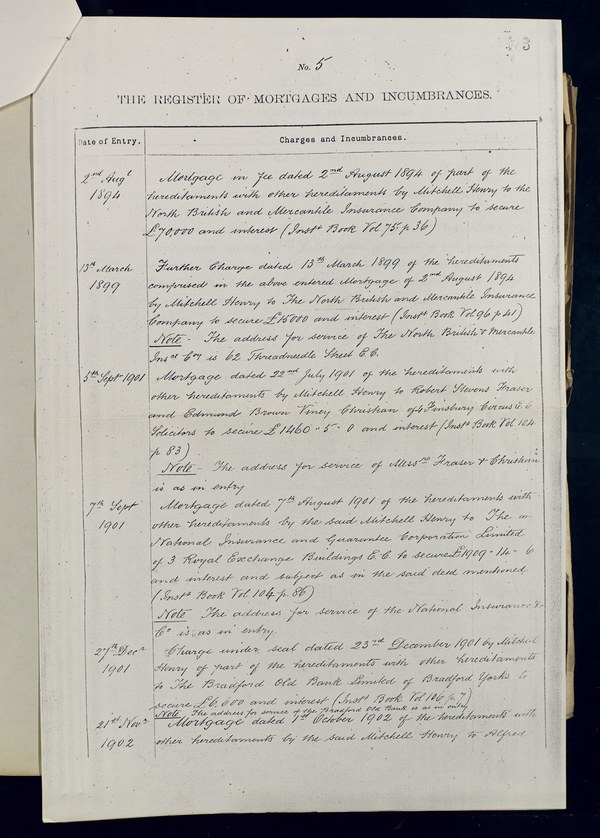 3
No. 5
THE REGISTER OF MORTGAGES AND INCUMBRANCES.
Date of Entry.
Charges and Incumbrances.
2nd Augt
1894
Mortgage in fee dated 2nd August 1894 of part of the
hereditaments with other hereditaments by Mitchell Henry to the
North British and Mercantile Insurance Company to secure
£70,000 and interest (Inst. Book Vol 75 p 36)
13th March
1899
Further Charge dated 13th March 1899 of the hereditaments
comprised in the above entered Mortgage of 2nd August 1894
by Mitchell Henry to The North British and Mercantile Insurance
Company to secure £15000 and interest (Inst. Book Vol 96 p 41)
Note - The address for service of The North British & Mercantile
Insce Coy is 62 Threadneedle Street E.C.
5th Sept 1901
Mortgage dated 22nd July 1901 of the hereditaments with
other hereditaments by Mitchell Henry to Robert Stevens Fraser
and Edmund Brown Viney Christian of 4 Finsbury Circus E.C.
Solicitors to secure £1460-5-0 and interest (Inst. Book Vol 104
p 83)
Note - The address for service of Messrs Fraser & Christian
is as in entry
7th Sept
1901
Mortgage dated 7th August 1901 of the hereditaments with
other hereditaments by the said Mitchell Henry to The
National Insurance and Guarantee Corporation Limited
of 3 Royal Exchange Buildings E.C. to secure £1909-14-6
and interest and subject as in the said deed mentioned
(Inst. Book Vol 104 p. 86)
Note The address for service of the National Insurance &c
Co is as in entry
27th Decr
1901
Charge under seal dated 23rd December 1901 by Mitchell
Henry of part of the hereditaments with other hereditaments
to The Bradford Old Bank Limited of Bradford Yorks to
secure £6,600 and interest (Inst. Book Vol 106 p. 7)
Note The address for service of the Bradford Old Bank is as in entry
21st Novr
1902
Mortgage dated 1st October 1902 of the hereditaments with
other hereditaments by the said Mitchell Henry to Alfred